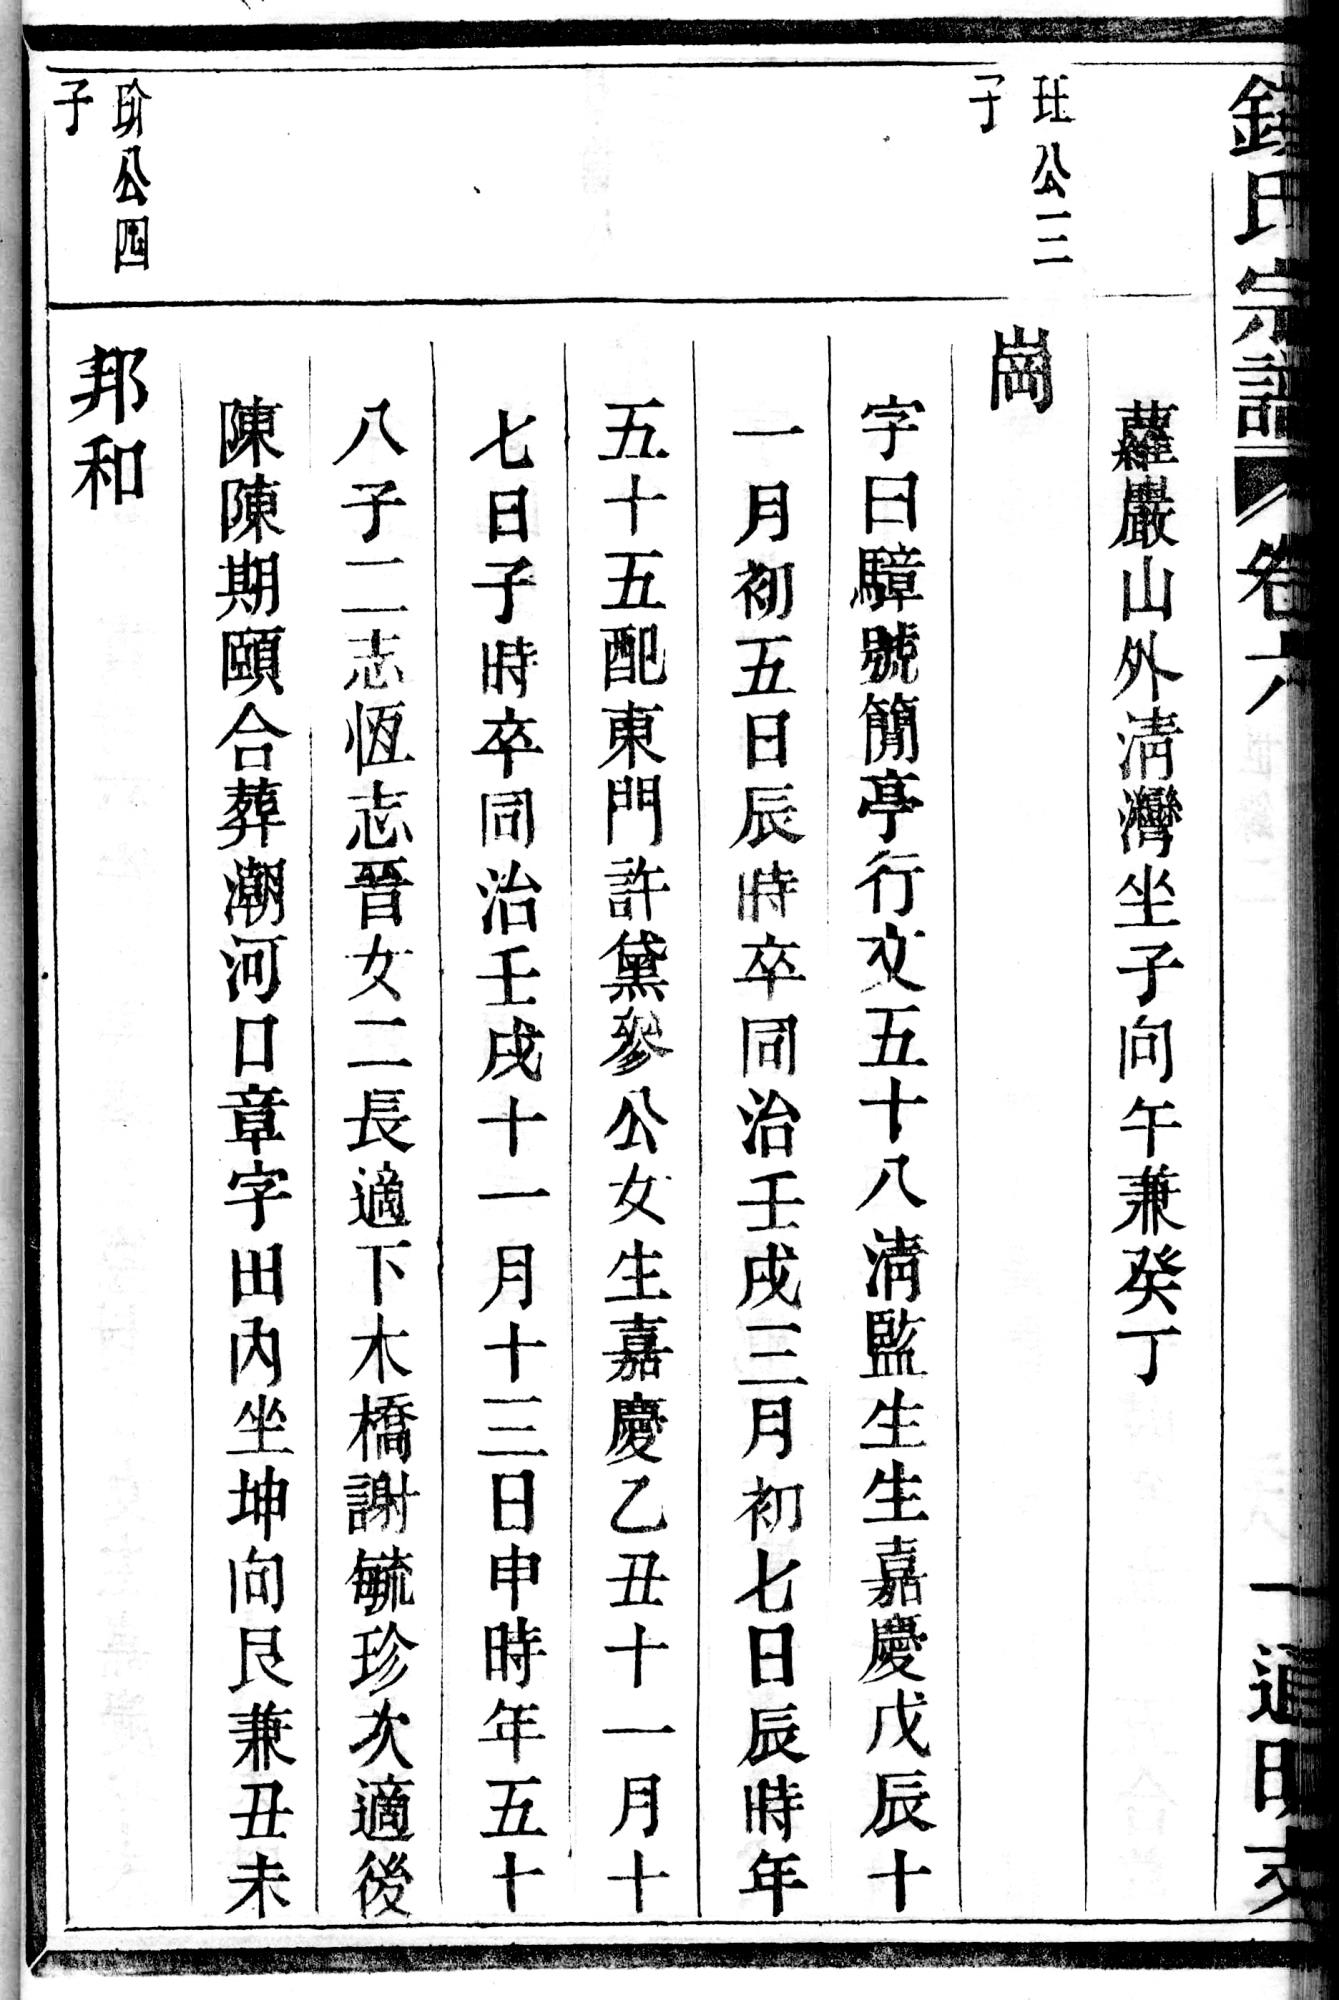 錢氏宗譜 卷六 一 通明支
蘿巖山外淸灣坐子向午兼癸丁
珏公三
子
崗
字曰騿號簡亭行文五十八淸監生生嘉慶戊辰十
一月初五日辰時卒同治壬戌三月初七日辰時年
五十五配東門許黛參公女生嘉慶乙丑十一月十
七日子時卒同治壬戌十一月十三日申時年五十
八子二志恆志晉女二長適下木橋謝毓珍次適後
陳陳期頤合葬潮河口章字田內坐坤向艮兼丑未
玠公四
子
邦和